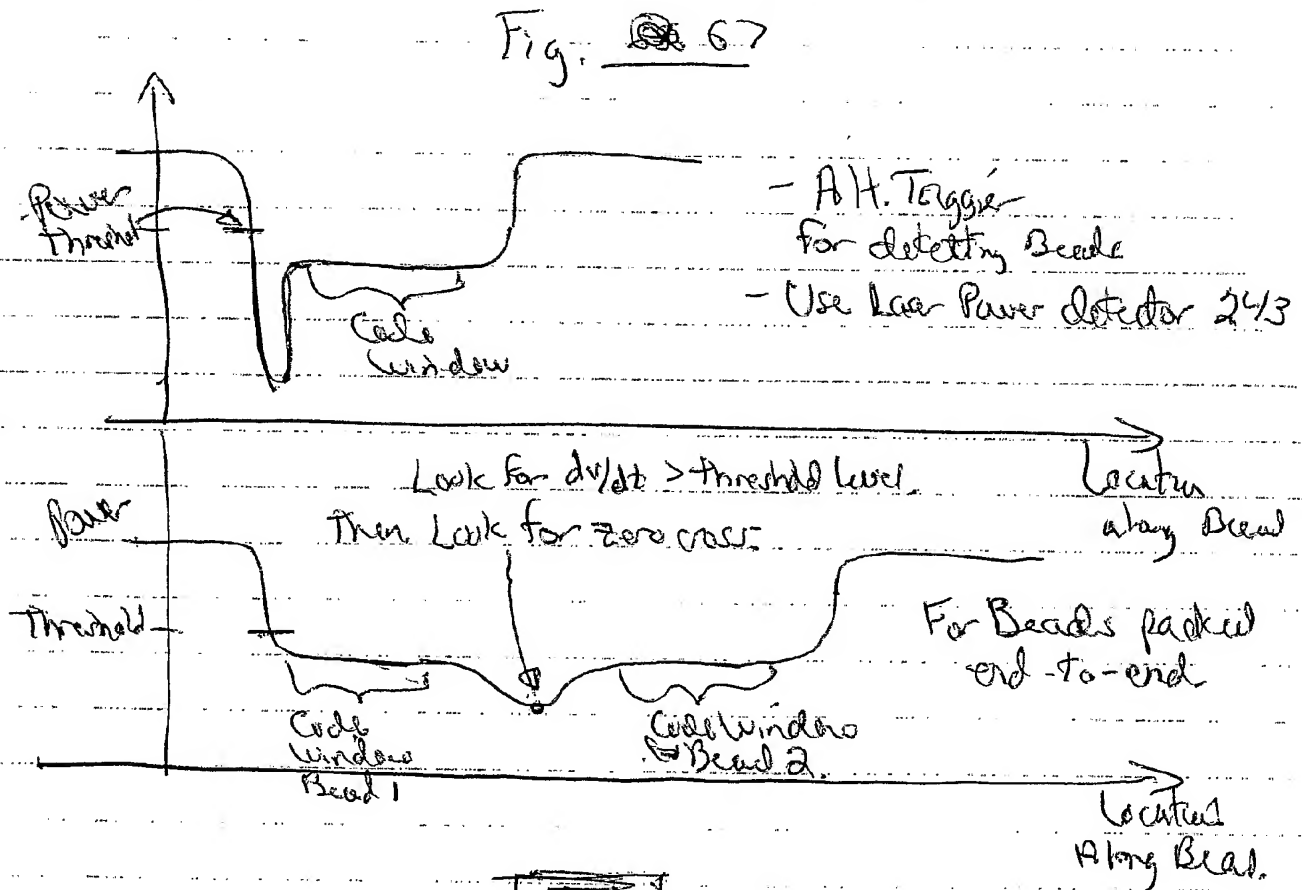 Fig. 67
Power
Threshold
Code
Window
- Alt. Trigger
for detecting Beads
- Use Laser Power detector 243
Location
along Bead
Look for dv/dt > threshold level.
Then Look for zero cross.
Power
Threshold
Code
Window
Bead 1
Code Window
Bead 2.
For Beads packed
end-to-end
Location
Along Bead.